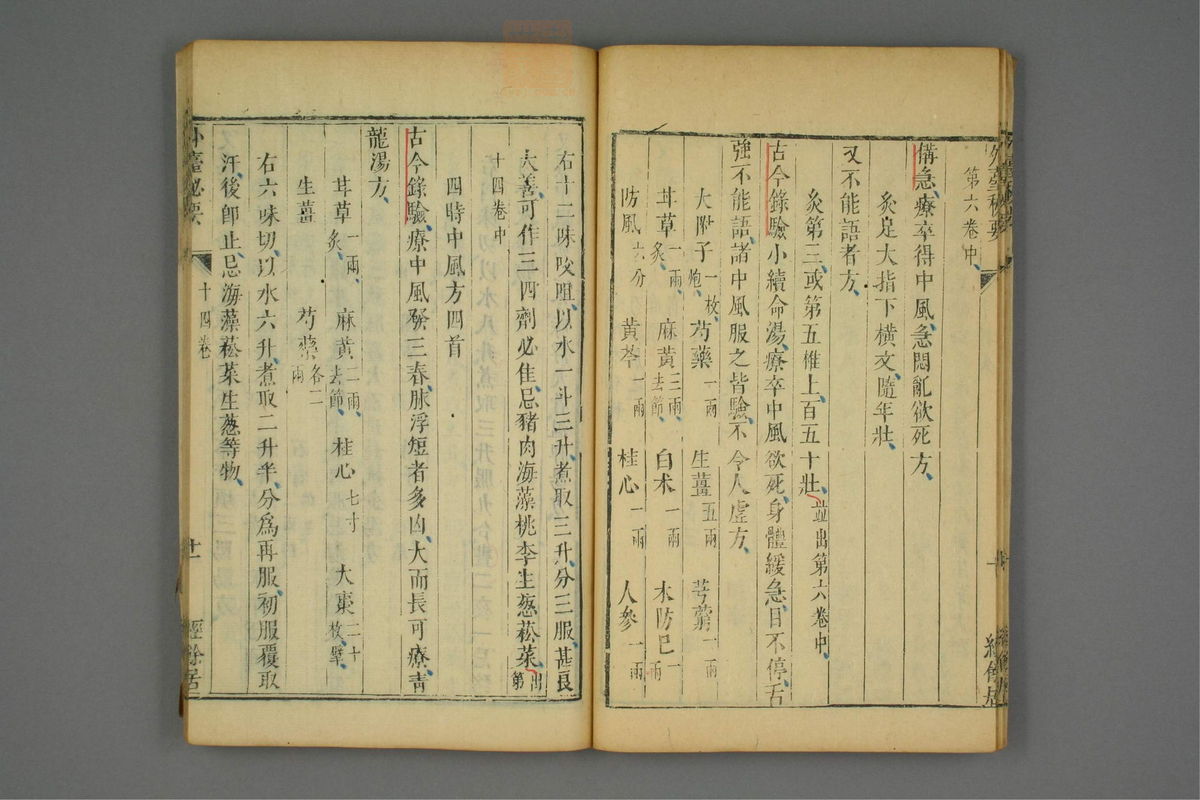 第六卷中
備急療卒得中風急悶亂欲死方
灸足大指下橫文隨年壯
又不能語者方
灸第三或第五椎上百五十壯並出第六卷中
古今錄驗小續命湯療卒中風欲死身體緩急目不停舌
強不能語諸中風服之皆驗不令人虛方
大附子一枚炮 芍藥一兩 生薑五兩 芎藭一兩
甘草一兩炙 麻黃三兩去節 白术一兩 木防已一兩
防風六分 黃芩一兩 桂心一兩 人參一兩
右十二味㕮咀以水一斗三升煮取三升分三服甚良
大善可作三四劑必佳忌豬肉海藻桃李生葱菘菜出第
十四卷中
四時中風方四首
古今錄驗療中風發三春脉浮短者多凶大而長可療青
龍湯方
甘草一兩炙 麻黃二兩去節 桂心七寸 大棗二十枚擘
生薑 芍藥各二兩
右六味切以水六升煮取二升半分爲再服初服覆取
汗後卽止忌海藻菘菜生葱等物
外臺祕要 十四卷 十一 經餘居